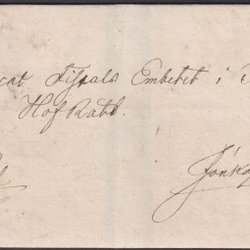 cat Fiscals Embetet i
Hof Rätt.
Jönkö